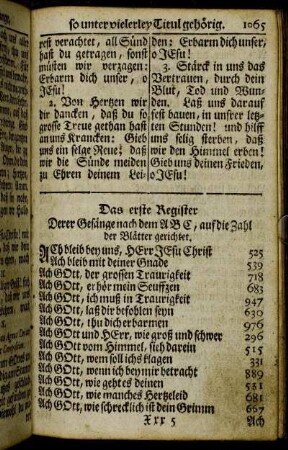 so unter vielerley Titul gehörig. 1065
rest verachtet, all Sünd
hast du getragen, sonst
müsten wir verzagen:
Erbarm dich unser, o
JEsu!
2. Von Hertzen wir
dir dancken, daß du so
grosse Treue gethan hast
an uns Krancken: Gieb
uns ein selge Reue! daß
wir die Sünde meiden
zu Ehren deinem Lei-
den: Erbarm dich unser,
o JEsu!
3. Stärck in uns das
Vertrauen, durch dein
Blut, Tod und Wun-
den. Laß uns darauf
fest bauen, in unsrer letz-
ten Stunden! und hilff
uns selig sterben, daß
wir den Himmel erben!
Gieb uns deinen Frieden,
o JEsu!
Das erste Register
Derer Gesänge nach dem A B C, auf die Zahl
der Blätter gerichtet.
ACh bleib bey uns, HErr JEsu Christ 525
Ach bleib mit deiner Gnade 539
Ach GOtt, der grossen Traurigkeit 718
Ach GOtt, erhör mein Seuffzen 683
Ach GOtt, ich muß in Traurigkeit 947
Ach GOtt, laß dir befohlen seyn 630
Ach GOtt, thu dich erbarmen 976
Ach GOtt und HErr, wie groß und schwer 296
Ach GOtt vom Himmel, sieh darein 515
Ach GOtt, wem soll ichs klagen 331
Ach GOtt, wenn ich bey mir betracht 889
Ach GOtt, wie geht es deinen 551
Ach GOtt, wie manches Hertzeleid 681
Ach GOtt, wie schrecklich ist dein Grimm 667
Xxx 5 Ach